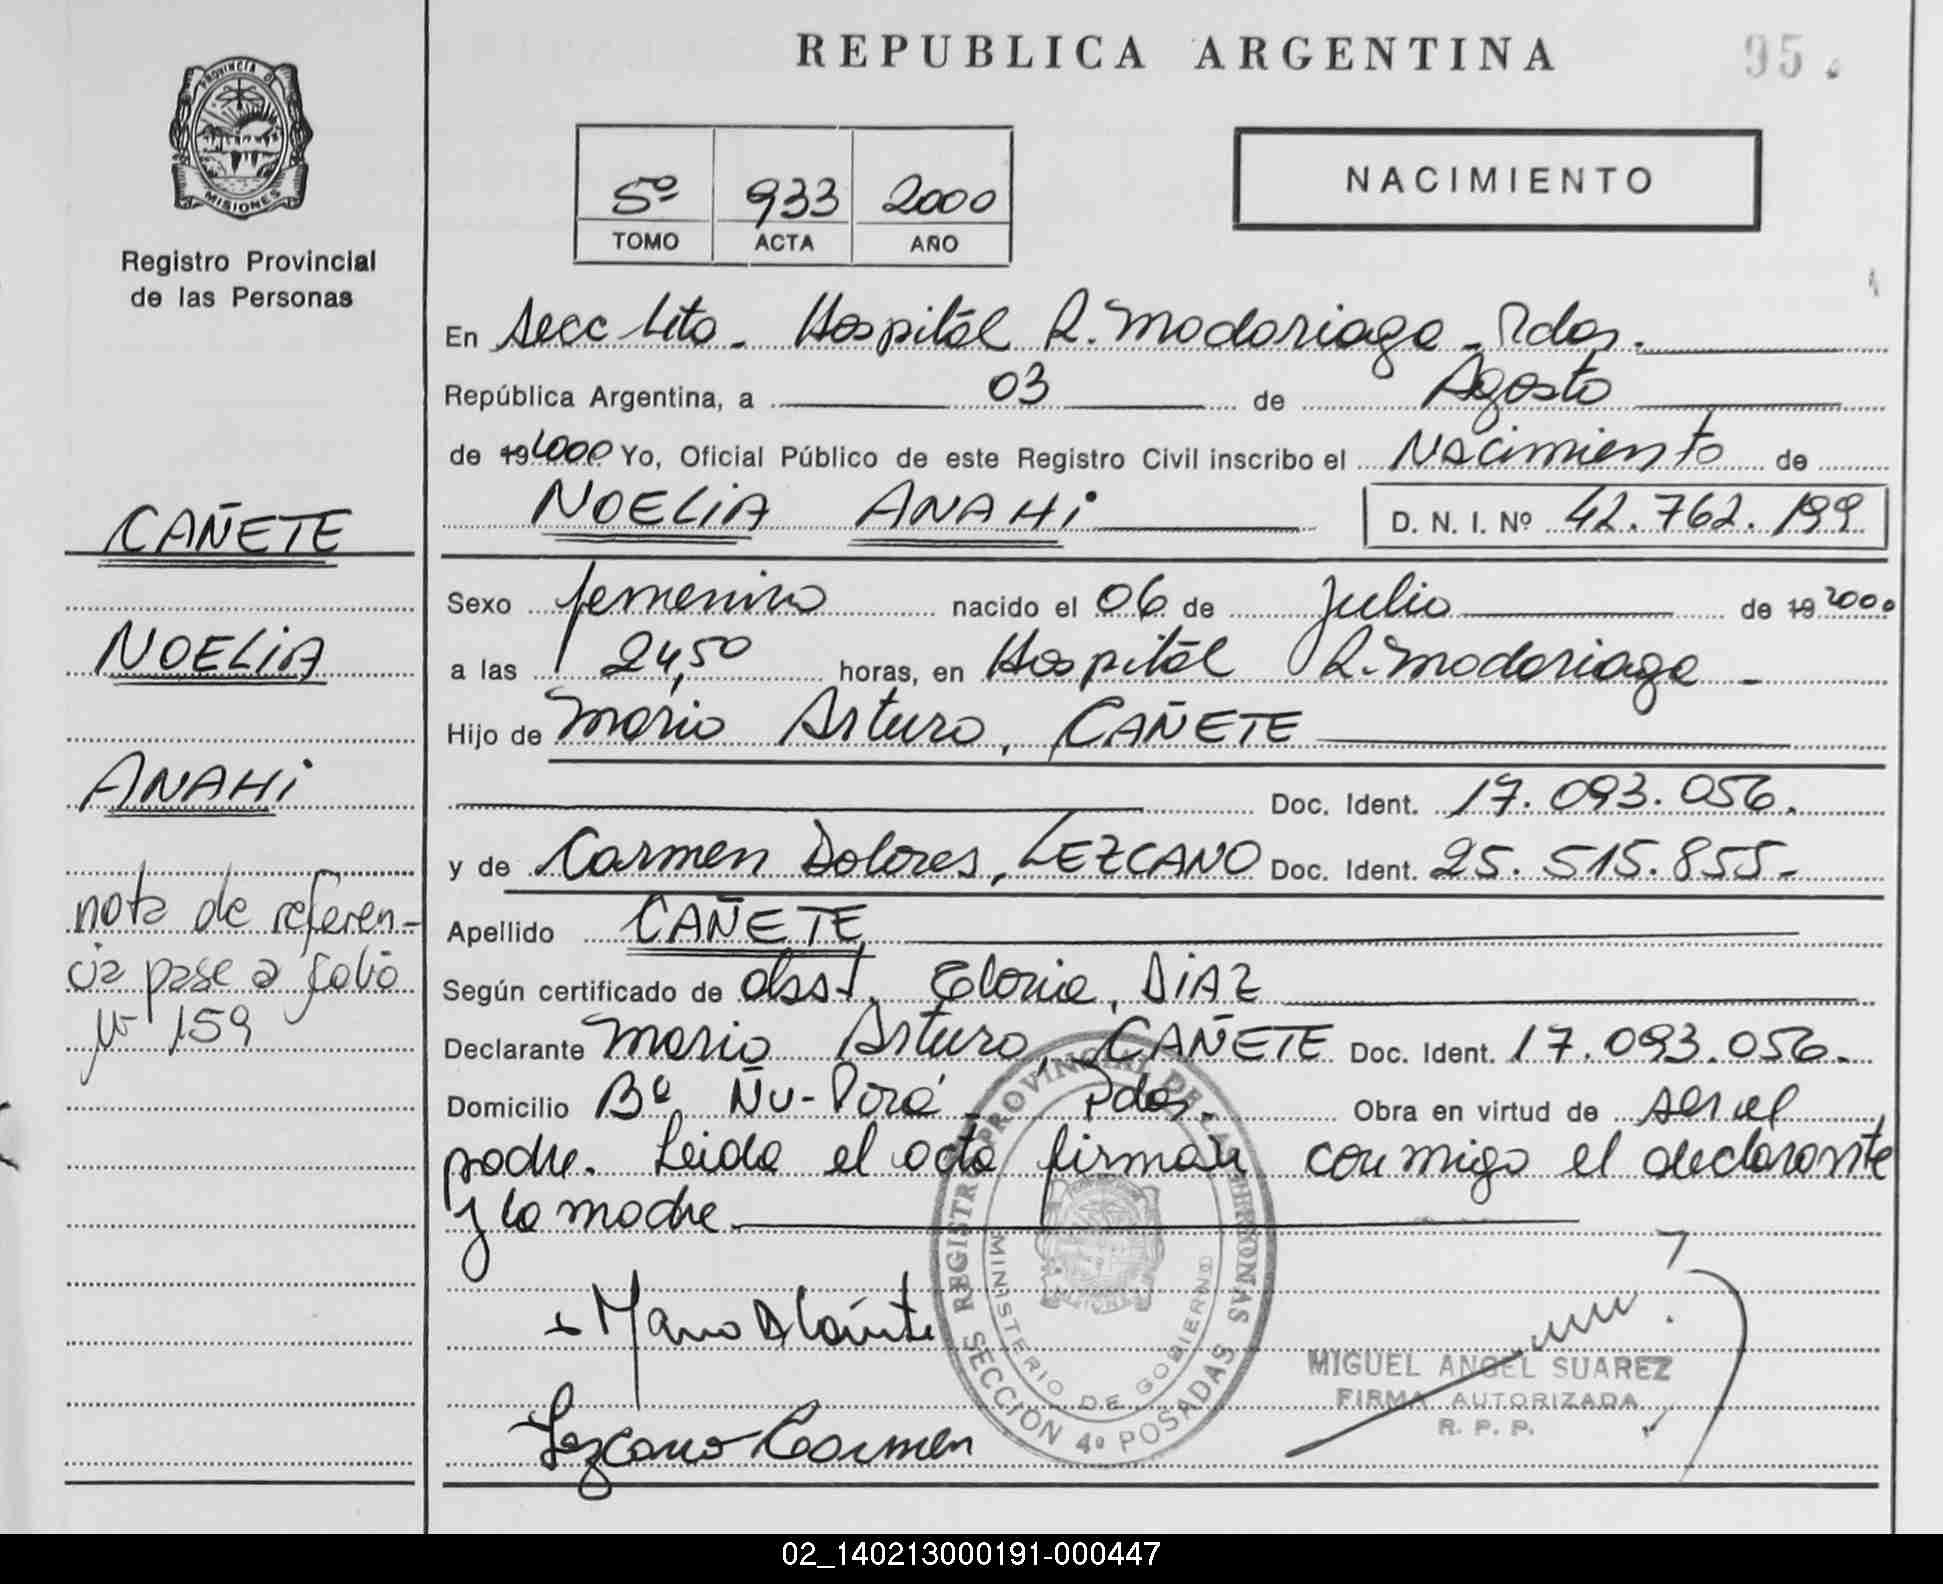 REPUBLICA ARGENTINA
95.
PROVINCIA D
MISIONES
Registro Provincial
de las Personas
5º 933 2000
TOMO ACTA AÑO
NACIMIENTO
En Secc 4ta. Hospital R. Madariaga - Pdas.
República Argentina, a 03 de Agosto
de 19 2000 Yo, Oficial Público de este Registro Civil inscribo el Nacimiento de
NOELIA ANAHI D. N. I. Nº 42.762.199
Sexo femenino nacido el 06 de Julio de 19 2000
a las 24,50 horas, en Hospital R. Madariaga -
Hijo de Mario Arturo, CAÑETE
Doc. Ident. 17.093.056.
y de Carmen Dolores, LEZCANO Doc. Ident. 25.515.855-
Apellido CAÑETE
Según certificado de obst. Gloria, DIAZ
Declarante Mario Arturo, CAÑETE Doc. Ident. 17.093.056.
Domicilio Bº Ñu-Porá - Pdas. Obra en virtud de ser el
padre. Leida el acta firman conmigo el declarante
y la madre
CAÑETE
NOELIA
ANAHI
nota de referen-
cia pase a folio
Nº 159
Mario A Cañete
Lezcano Carmen
REGISTRO PROVINCIAL DE LAS PERSONAS
MINISTERIO DE GOBIERNO
SECCIÓN 4º POSADAS
MIGUEL ANGEL SUAREZ
FIRMA AUTORIZADA
R. P. P.
02_140213000191-000447